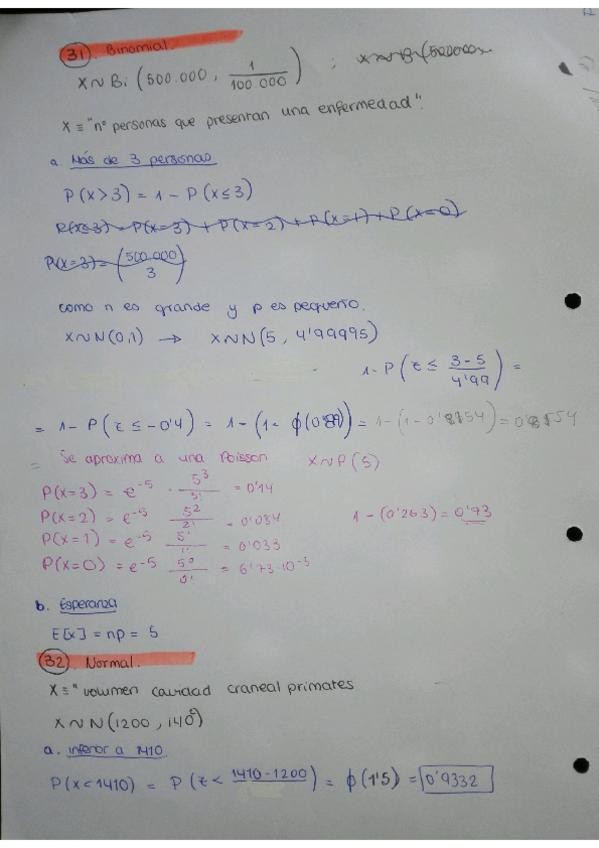 31. Binomial.
X ~ Bi (500.000, 1/100.000) ; X ~ Bi (500000
X ≡ "nº personas que presentan una enfermedad".
a. Más de 3 personas
P(X>3) = 1 - P(X≤3)
P(X≤3) = P(X=3) + P(X=2) + P(X=1) + P(X=0)
P(X=3) = (500.000 / 3)
como n es grande y p es pequeño.
X ~ N(0,1) → X ~ N(5, 4'99995)
1 - P(z ≤ (3-5)/4'99) =
= 1 - P(z ≤ -0'4) = 1 - (1 - ϕ(0'89)) = 1 - (1 - 0'8154) = 0'8154
= Se aproxima a una Poisson X ~ P(5)
P(X=3) = e^-5 · 5^3/3! = 0'14
P(X=2) = e^-5 5^2/2! = 0'084
1 - (0'263) = 0'73
P(X=1) = e^-5 5^1/1! = 0'033
P(X=0) = e^-5 5^0/0! = 6'73·10^-3
b. Esperanza
E[X] = np = 5
32. Normal.
X ≡ "volumen cavidad craneal primates
X ~ N(1200, 140²)
a. inferior a 1410
P(X<1410) = P(z < 1410-1200) = ϕ(1'5) = 0'9332